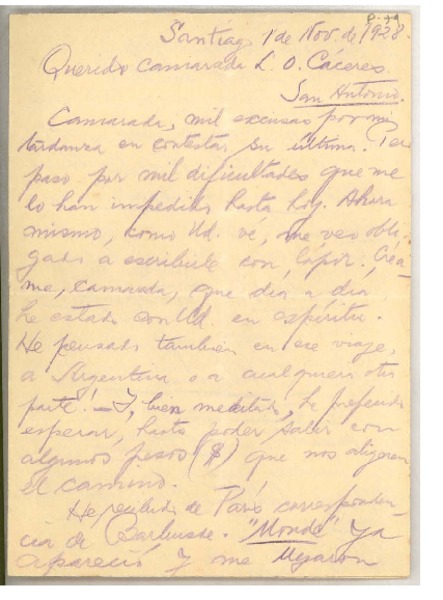 P-44
Santiago 1 de Nov. de 1928.
Querido camarada L. O. Cáceres.
San Antonio.
Camarada, mil excusas por mi
tardanza en contestar su última. Pero
paso por mil dificultades que me
lo han impedido hasta hoy. Ahora
mismo, como Ud. ve, me veo obli-
gado a escribirle con lápiz. Créa-
me, camarada, que dia a dia
he estado con Ud. en espíritu.
He pensado también en ese viaje,
a Argentina o a cualquiera otra
parte. Y, bien meditado, he preferido
esperar, hasta poder salir con
algunos pesos ($) que nos aligeren
el camino.
He recibido de París corresponden-
cia de Barbusse. "Monde" ya
apareció y me llegaron